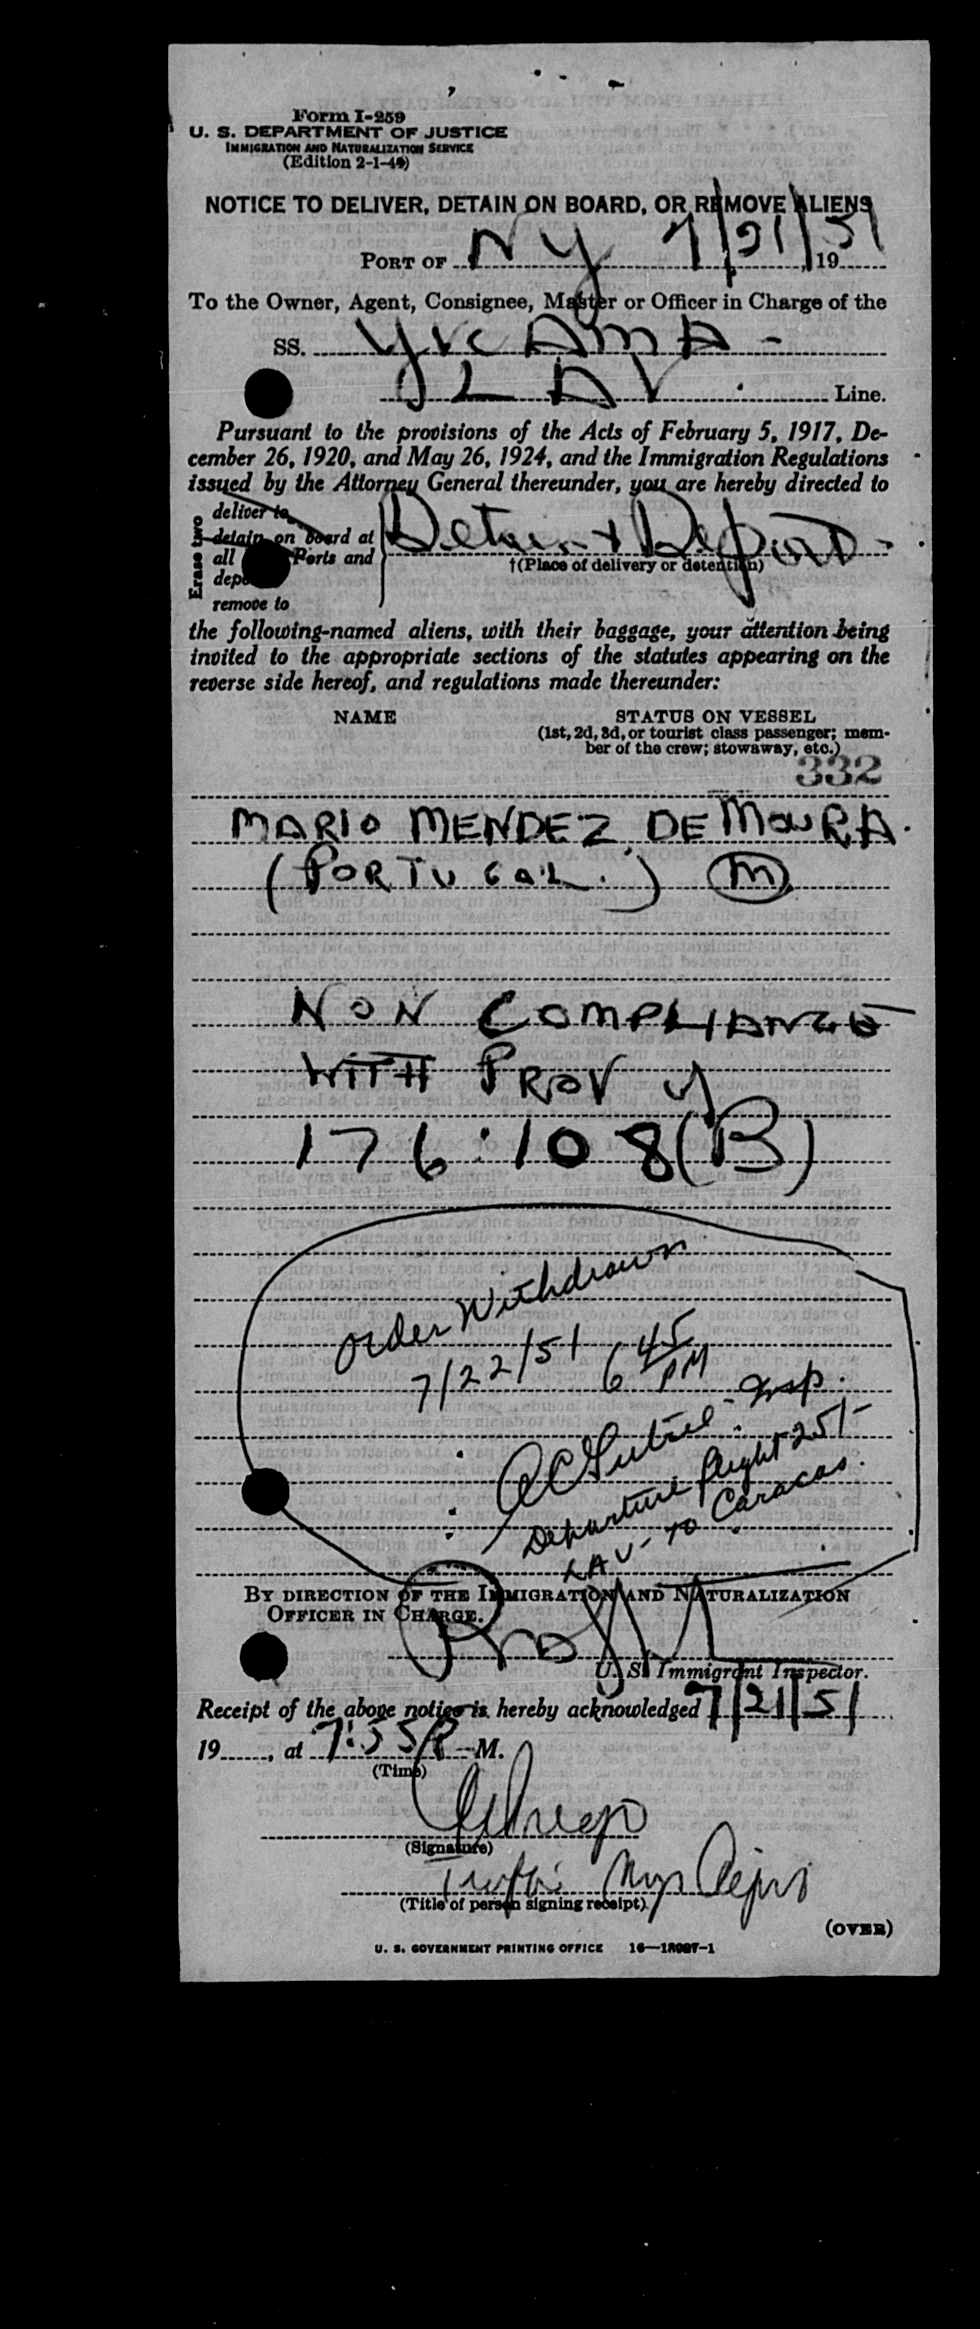 Form I-259
U. S. DEPARTMENT OF JUSTICE
IMMIGRATION AND NATURALIZATION SERVICE
(Edition 2-1-49)
NOTICE TO DELIVER, DETAIN ON BOARD, OR REMOVE ALIENS
PORT OF NY 7/21/51 19
To the Owner, Agent, Consignee, Master or Officer in Charge of the
SS. YVC AMA -
LAV. Line.
Pursuant to the provisions of the Acts of February 5, 1917, De-
cember 26, 1920, and May 26, 1924, and the Immigration Regulations
issued by the Attorney General thereunder, you are hereby directed to
Erase two
deliver to
detain on board at
all Ports and
remove to
Detain & Deport -
†(Place of delivery or detention)
the following-named aliens, with their baggage, your attention being
invited to the appropriate sections of the statutes appearing on the
reverse side hereof, and regulations made thereunder:
NAME STATUS ON VESSEL
(1st, 2d, 3d, or tourist class passenger; mem-
ber of the crew; stowaway, etc.)
332
MARIO MENDEZ DE MOURA.
(PORTUGAL.) M
NON COMPLIANCE
WITH PROV of
176.108(B)
Order Withdrawn
7/22/51 6 45 PM
Insp.
Departure flight 251-
LAV - to Caracas.
BY DIRECTION OF THE IMMIGRATION AND NATURALIZATION
OFFICER IN CHARGE.
U. S. Immigrant Inspector.
Receipt of the above notice is hereby acknowledged 7/21/51
19......, at 7:55 P M.
(Time)
(Signature)
(Title of person signing receipt)
(OVER)
U. S. GOVERNMENT PRINTING OFFICE 16—18087-1